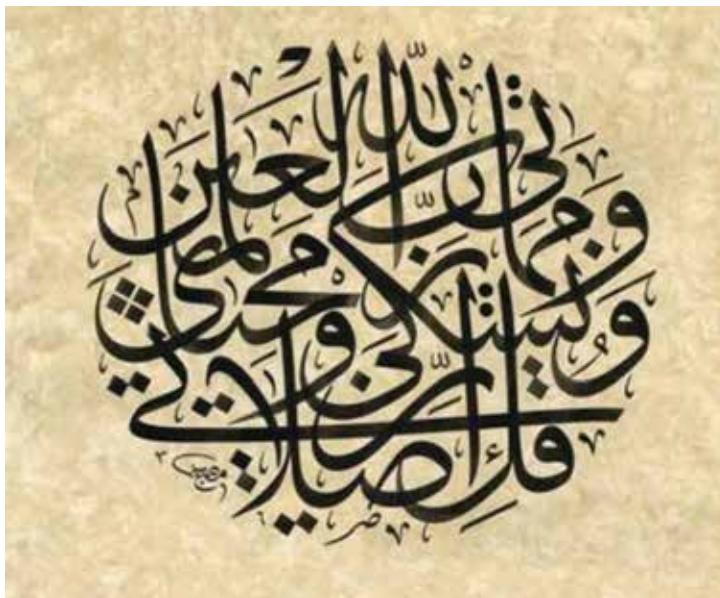 قل إن صلاتي ونسكي ومحياي ومماتي لله رب العلمين